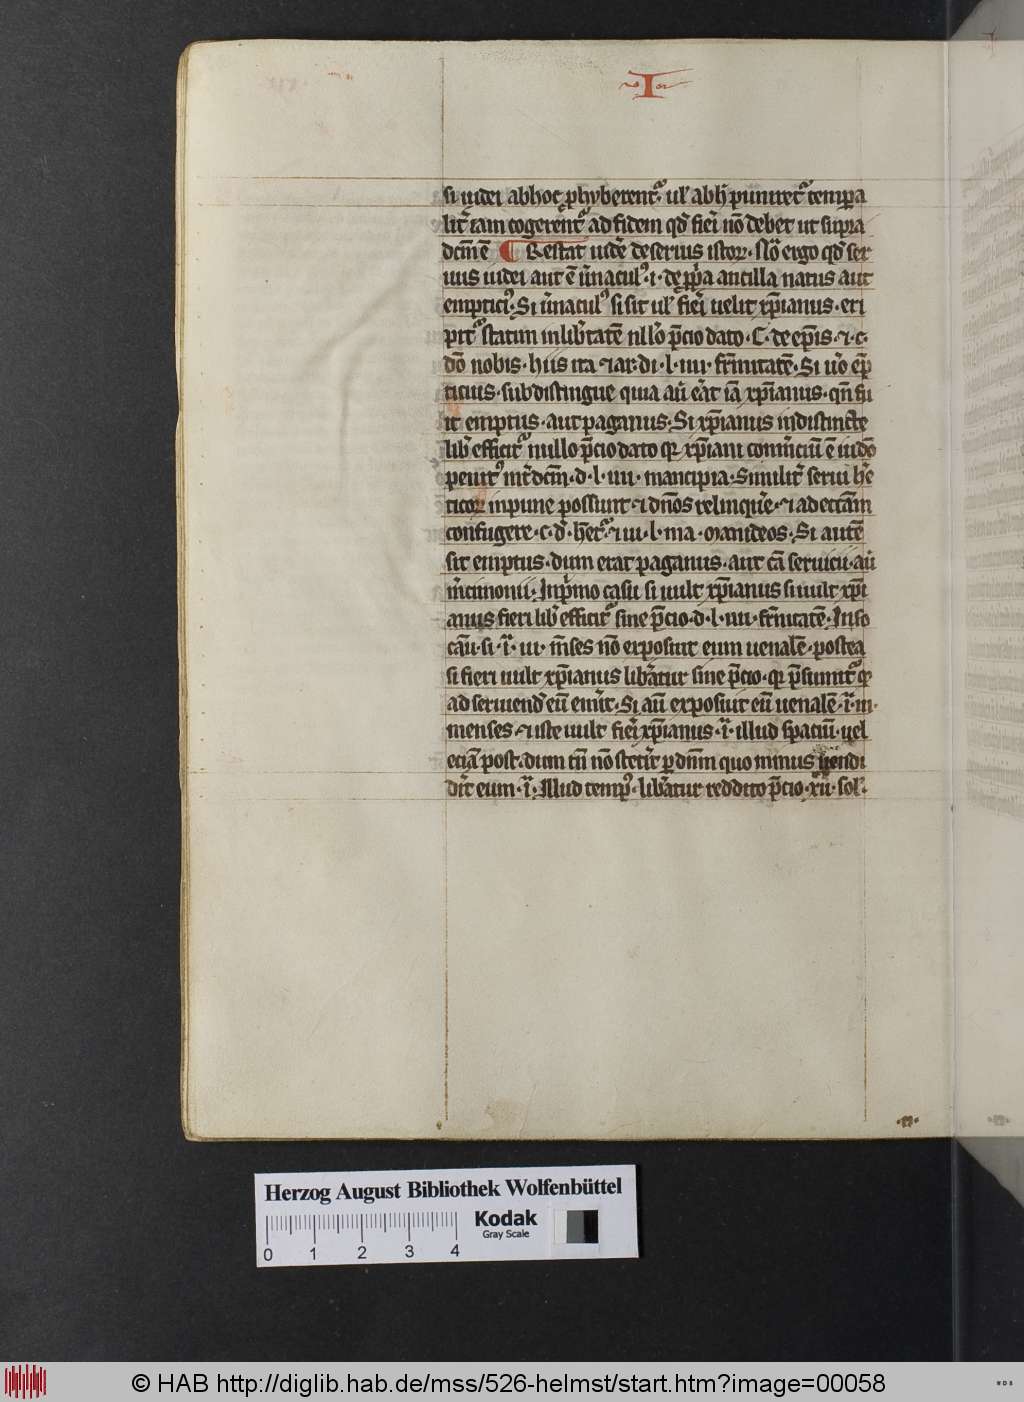 I
si iudei abhoc phyberent᷑. ul' abh̾ puniret᷑ tempora
lit᷑ iam cogerent᷑ ad fidem qd̾ fieri nō debet ut supra
dc̄m ē ¶ Restat uidē de seruis istoꝝ. Nō ergo qd̾ ser
uus iudei aut ē u̾naculꝰ. i. de pp̄a ancilla natus aut
empticiꝰ. Si u̾naculꝰ si sit ul' fieri uelit xp̄ianus. eri
pit᷑ statim in lib̾tatē nllo p̄cio dato. C. de ep̄is. ⁊ c.
dō nobis. hiis ita ⁊ ar. di. l. iiii. fr̄nitatē. Si u̾o ēp
ticius. subdistingue quia au̾ erat iā xp̄ianus. qn̄ fu
it emptus. aut paganus. Si xp̄ianus indistincte
lib̾ efficit᷑ nullo p̄cio dato qr xp̄iani com̄ciū ē iudō
penitꝰ int̾dcm̄. d. l. iiii. mancipia. Similit̾ serui he
ticoꝝ inpune possunt ⁊ dn̄os relinqu̾e. ⁊ ad ecc̄am
confugere. c. d̾ het᷑. ⁊ iii. l. ma. manideos. Si autē
sit emptus. dum erat paganus. aut cā seruicii. au̾
m̄cimonii. In p̾mo casu si uult xp̄ianus si uult xp̄i
anus fieri lib̾ efficit᷑ sine p̄cio. d. l. iiii. fr̄nitatē. In so
cāu. si. i᷑. iii. m̄ses nō exposuit eum uenalē. postea
si fieri uult xp̄ianus lib̾atur sine p̄cio. qr p̄sumit᷑ qr
ad seruiend̾ eū emit. Si aū exposuit eū uenalē. i᷑. iii.
menses. ⁊ iste uult fieri xp̄ianus. i᷑. illud spaciū. uel
eciā post. dum tn̄ nō stet̾it p dn̄m quo minus uendi
dit̾ eum. i᷑. Illud tempꝰ. lib̾atur reddito p̄cio. xii. sol'.
Herzog August Bibliothek Wolfenbüttel
Kodak
Gray Scale
0 1 2 3 4
© HAB http://diglib.hab.de/mss/526-helmst/start.htm?image=00058